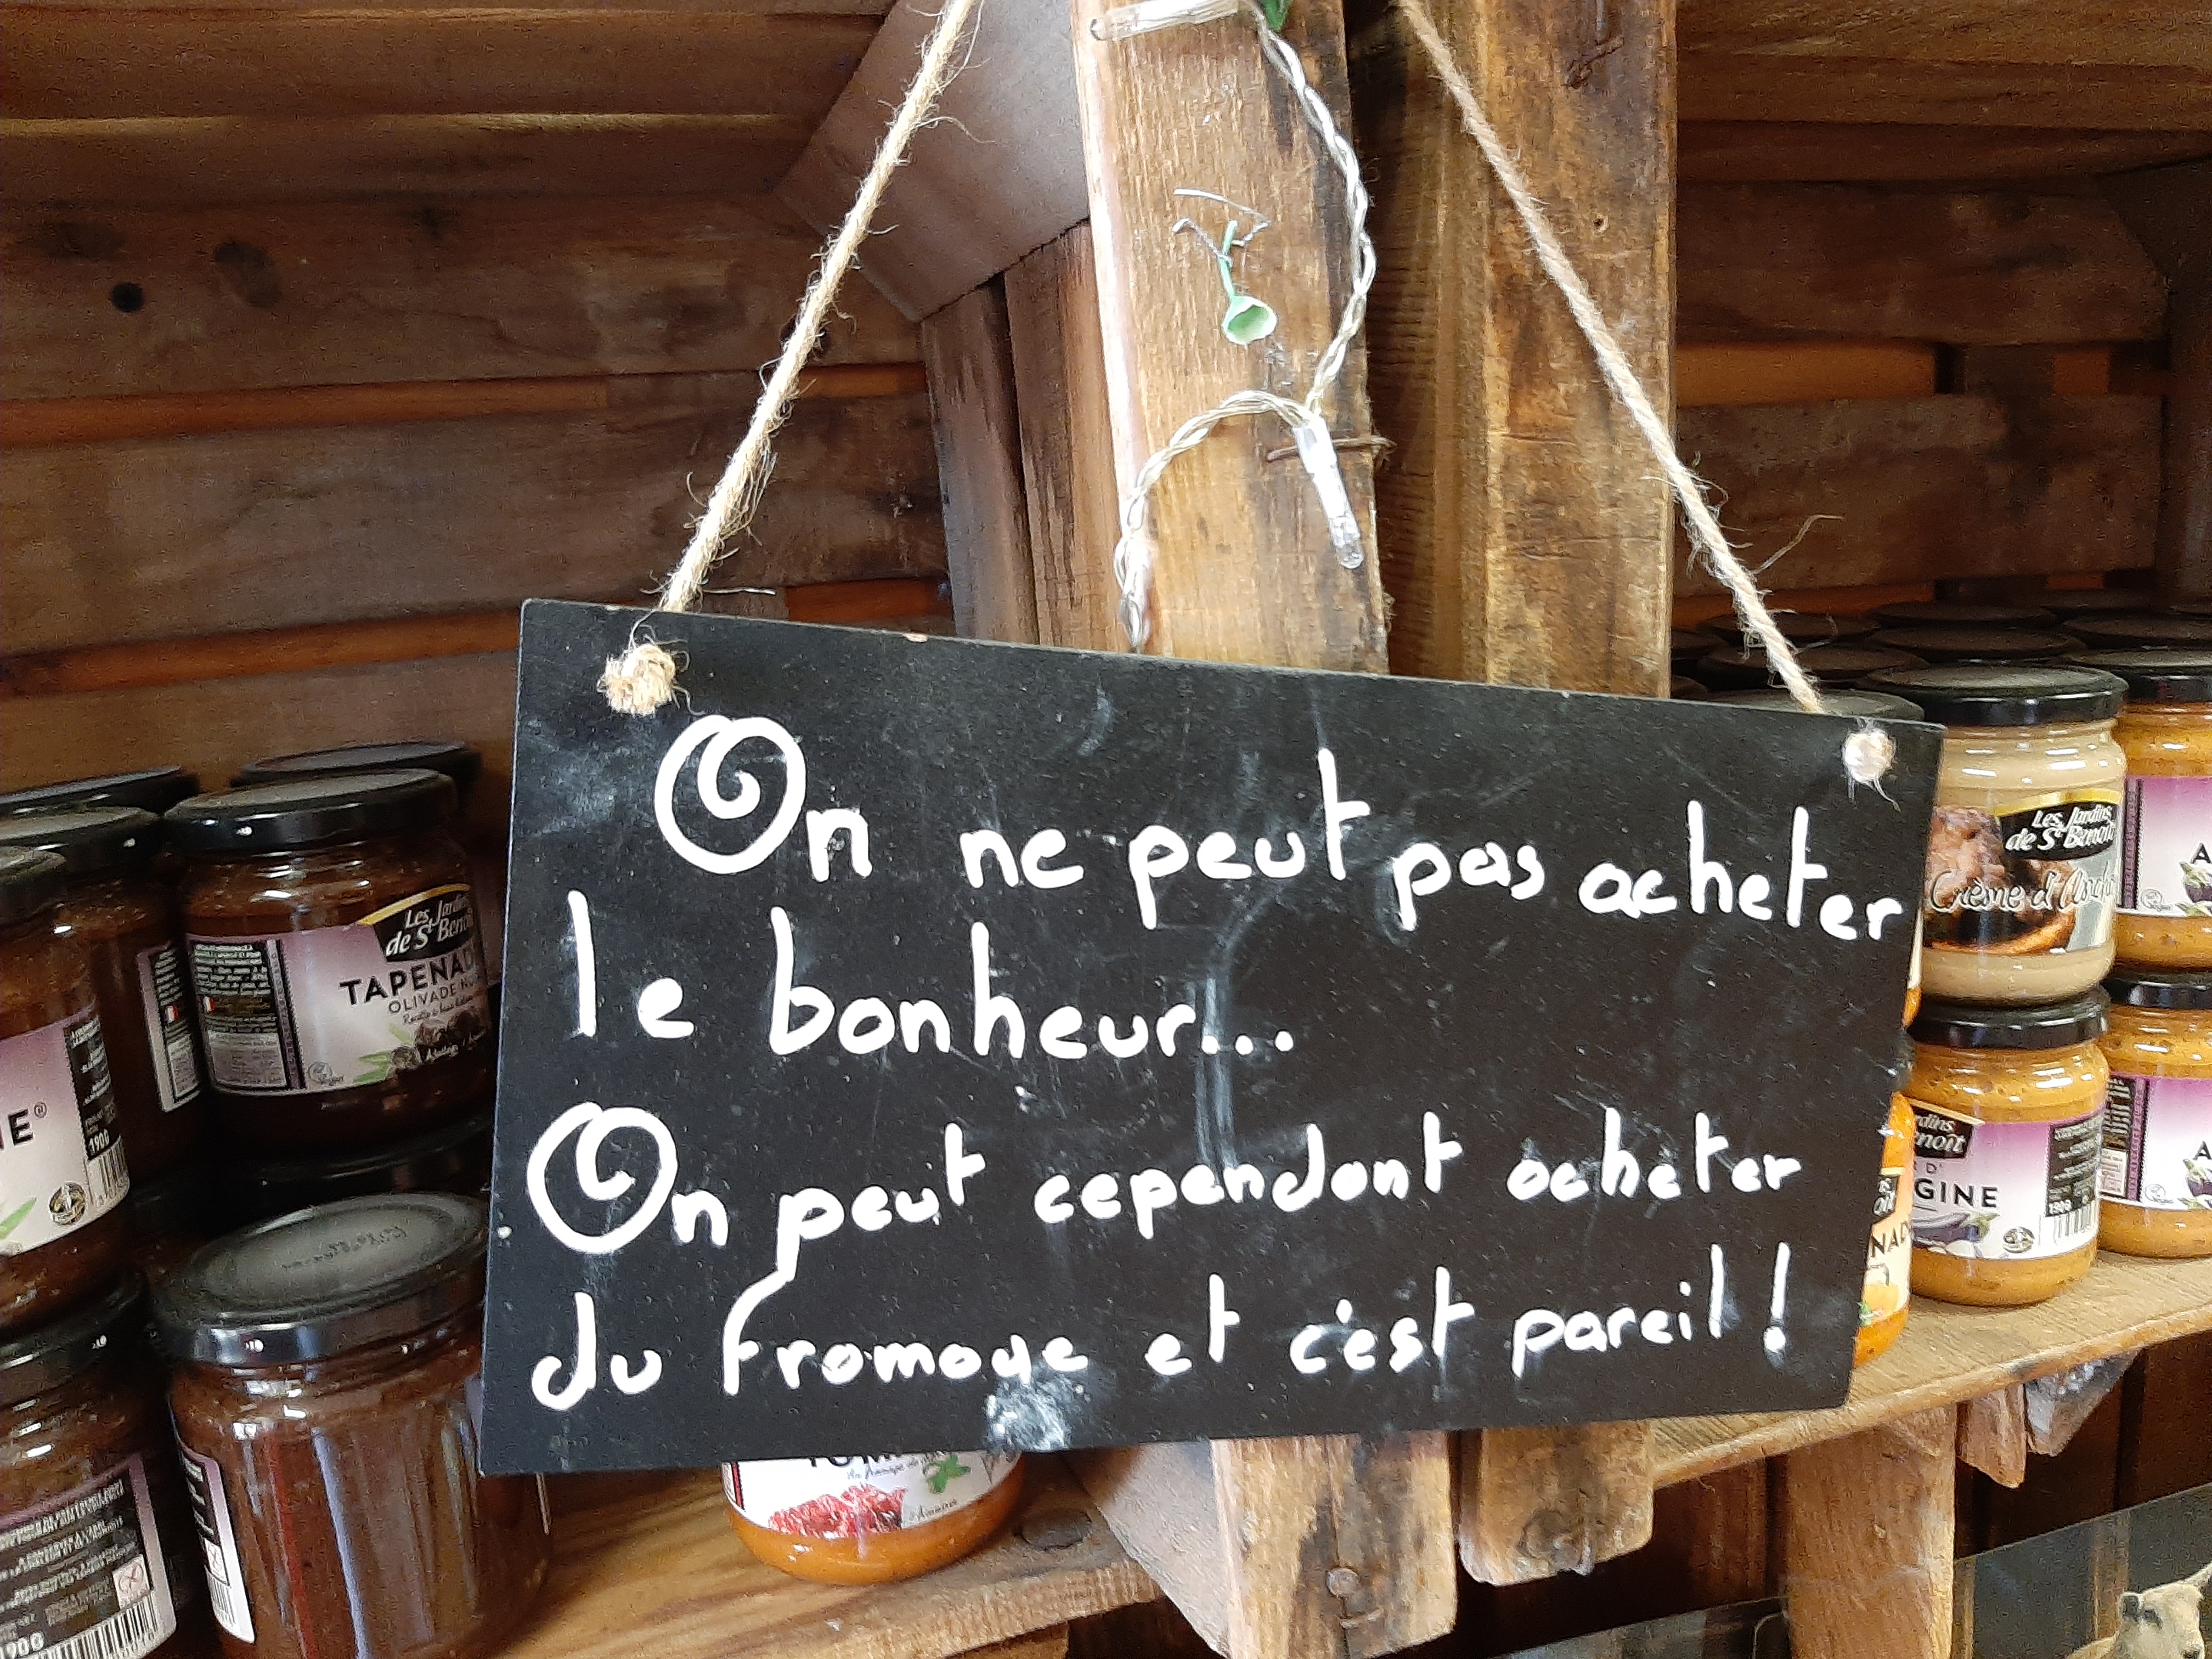 On ne peut pas acheter
le bonheur...
On peut cependant acheter
du fromage et c'est pareil !
Les Jardins
de St Benoît
TAPENAD
OLIVADE
190G
Les Jardins
de St Benoît
Crème d'
GINE
190G
190G